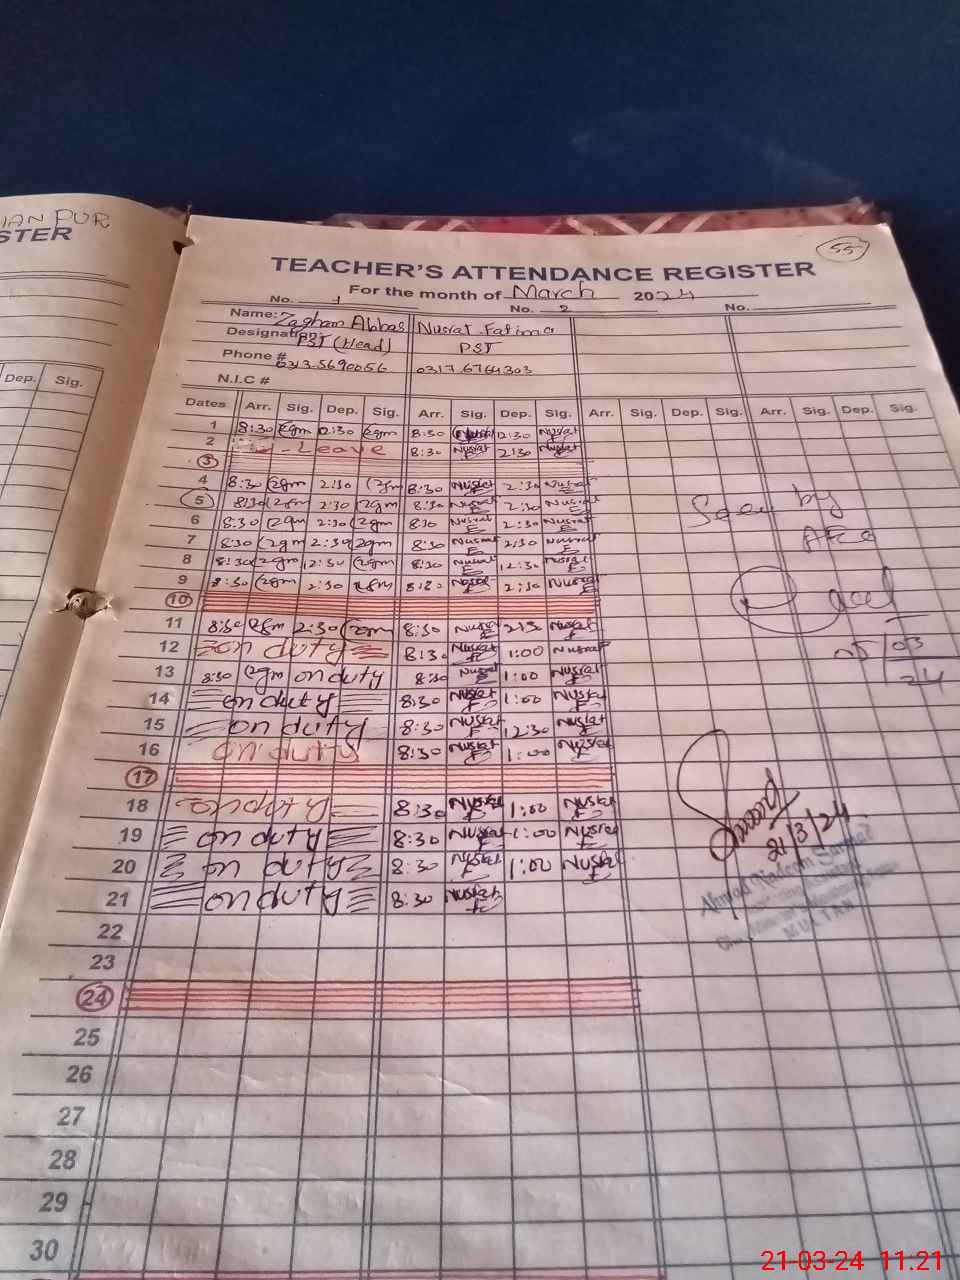 HAN PUR
STER
Dep. Sig.
55
TEACHER'S ATTENDANCE REGISTER
For the month of March 2024
No. 1 No. 2 No.
Name: Zagham Abbas Nusrat Fatima
Designation: PST (Head) PST
Phone # 0313.5690056 0317.6764303
N.I.C #
Dates Arr. Sig. Dep. Sig. Arr. Sig. Dep. Sig. Arr. Sig. Dep. Sig. Arr. Sig. Dep. Sig.
1 8:30 Zgm 12:30 Zgm 8:30 Nusrat 12:30 Nusrat
2 Leave 8:30 Nusrat 2:30 Nusrat
3
4 8:30 Zgm 2:30 Zgm 8:30 Nusrat 2:30 Nusrat
5 8:30 Zgm 2:30 Zgm 8:30 Nusrat 2:30 Nusrat
6 8:30 Zgm 2:30 Zgm 8:30 Nusrat 2:30 Nusrat
7 8:30 Zgm 2:30 Zgm 8:30 Nusrat 2:30 Nusrat
8 8:30 Zgm 12:30 Zgm 8:30 Nusrat 12:30 Nusrat
9 8:30 Zgm 2:30 Zgm 8:30 Nusrat 2:30 Nusrat
10
11 8:30 Zgm 2:30 Zgm 8:30 Nusrat 2:30 Nusrat
12 on duty 8:30 Nusrat 1:00 Nusrat
13 8:30 Zgm on duty 8:30 Nusrat 1:00 Nusrat
14 on duty 8:30 Nusrat 1:00 Nusrat
15 on duty 8:30 Nusrat 12:30 Nusrat
16 on duty 8:30 Nusrat 1:00 Nusrat
17
18 on duty 8:30 Nusrat 1:00 Nusrat
19 on duty 8:30 Nusrat 1:00 Nusrat
20 on duty 8:30 Nusrat 1:00 Nusrat
21 on duty 8:30 Nusrat
22
23
24
25
26
27
28
29
30
Seen by
AEO
05/03
24
21/3/24
Ahmad Nadeem Sarwar
MULTAN
21-03-24 11.21